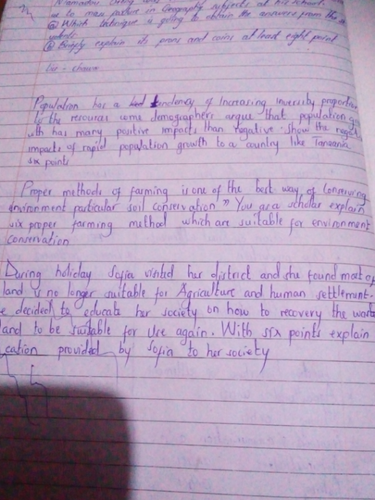 as to mass failure in Geography subjects at his school.
@ Which technique is going to obtain the answers from the
@ Briefly explain its prons and coins at least eight point
Population has a tendency of Increasing inversily proportion
to the resources some demographers urgue that population g
wth has many positive impacts than negative. Show the nega
impacts of rapid population growth to a country like Tanzania
six points
Proper methods of farming is one of the best way of conserving
environment particular soil conservation" You as a scholar explain
six proper farming method which are suitable for environment
conservation
During holiday Sofia visited her district and she found most of
land is no longer suitable for Agriculture and human settlement.
e decided to educate her society on how to recovery the waste
land to be suitable for use again. With six points explain
cation provided by Sofia to her society